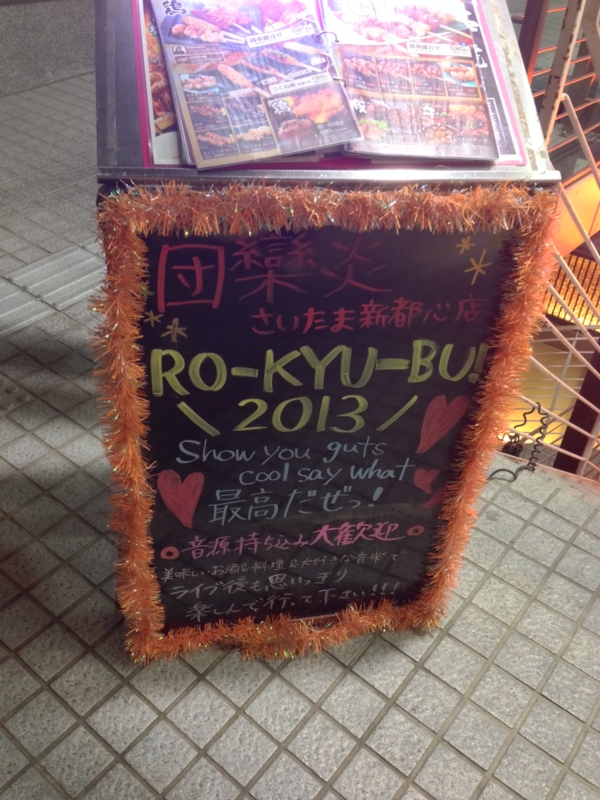 団欒炎
さいたま新都心店
RO-KYU-BU!
\ 2013 /
Show you guts
cool say what
最高だぜっ!
音源持ち込み大歓迎
美味しいお酒&料理&大好きな音楽で
ライブ後も思いっきり
楽しんで行って下さい!!!
鶏